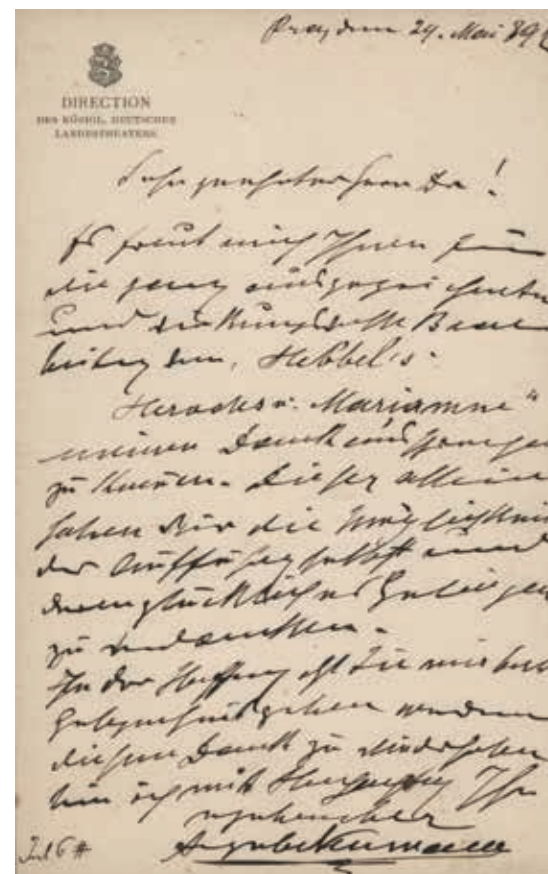 Prag, den 29. Mai 89
DIRECTION
DES KÖNIGL. DEUTSCHEN
LANDESTHEATERS.
Sehr geehrter Herr Dr!
Es freut mich Ihnen für
die ganz ausgezeichnete
und wirkungsvolle Bear
beitung von Hebbel's
Herodes u. Mariamne"
meinen Dank aussprechen
zu können. Dieser allein
haben wir die Möglichkeit
der Aufführung selbst und
deren glückliches Gelingen
zu verdanken.
In der Hoffnung daß Sie mir bald
Gelegenheit geben werden
diesen Dank zu wiederholen
bin ich mit Hochachtung Ihr
ergebenster
Angelo Neumann